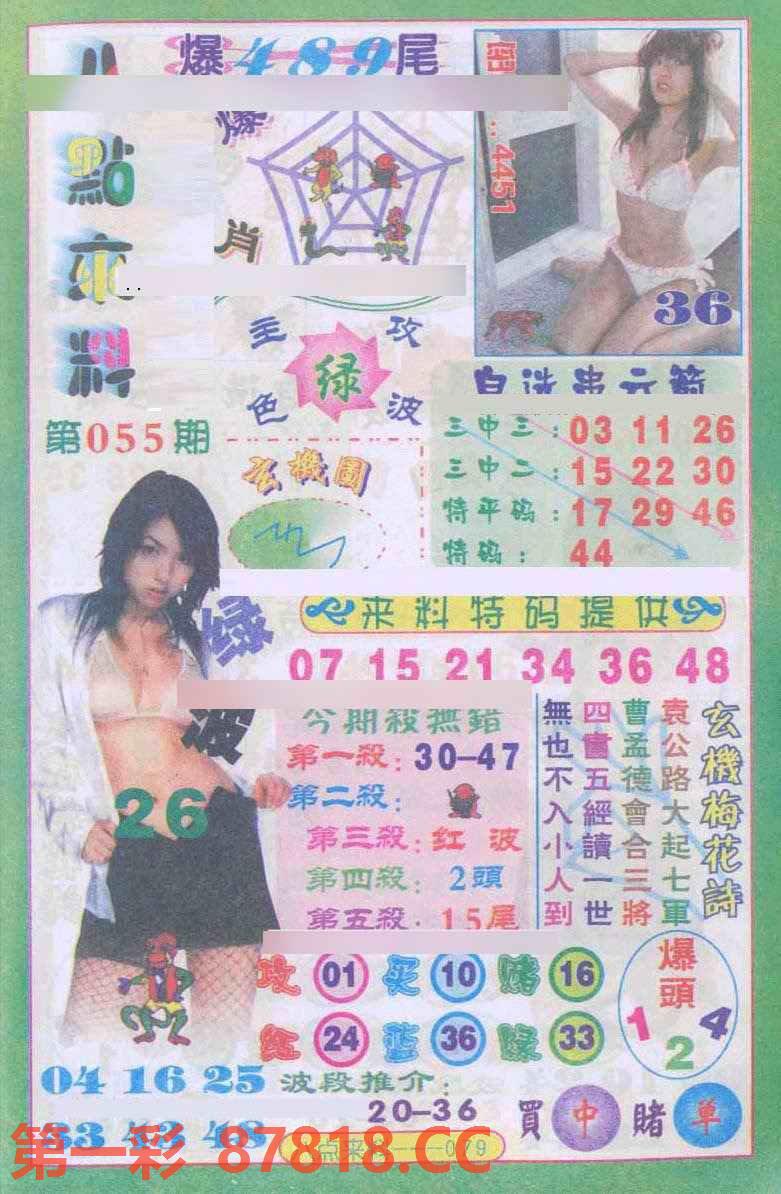 爆489尾
點來料
爆
肖
4451
36
主攻
绿
色波
第055期
玄機圖
三中三：03 11 26
三中二：15 22 30
特平码：17 29 46
特码：44
来料特码提供
07 15 21 34 36 48
绿
波
26
今期殺撫錯
第一殺：30-47
第二殺：
第三殺：红波
第四殺：2頭
第五殺：15尾
玄機梅花詩
袁公路大起七軍
曹孟德會合三將
四書五經讀一世
無也不入小人到
攻 01 买 10 赌 16
红 24 蓝 36 绿 33
爆頭
1 2 4
04 16 25
33 43 48
波段推介：
20-36
買中賭单
点来料---079
第一彩 87818.CC